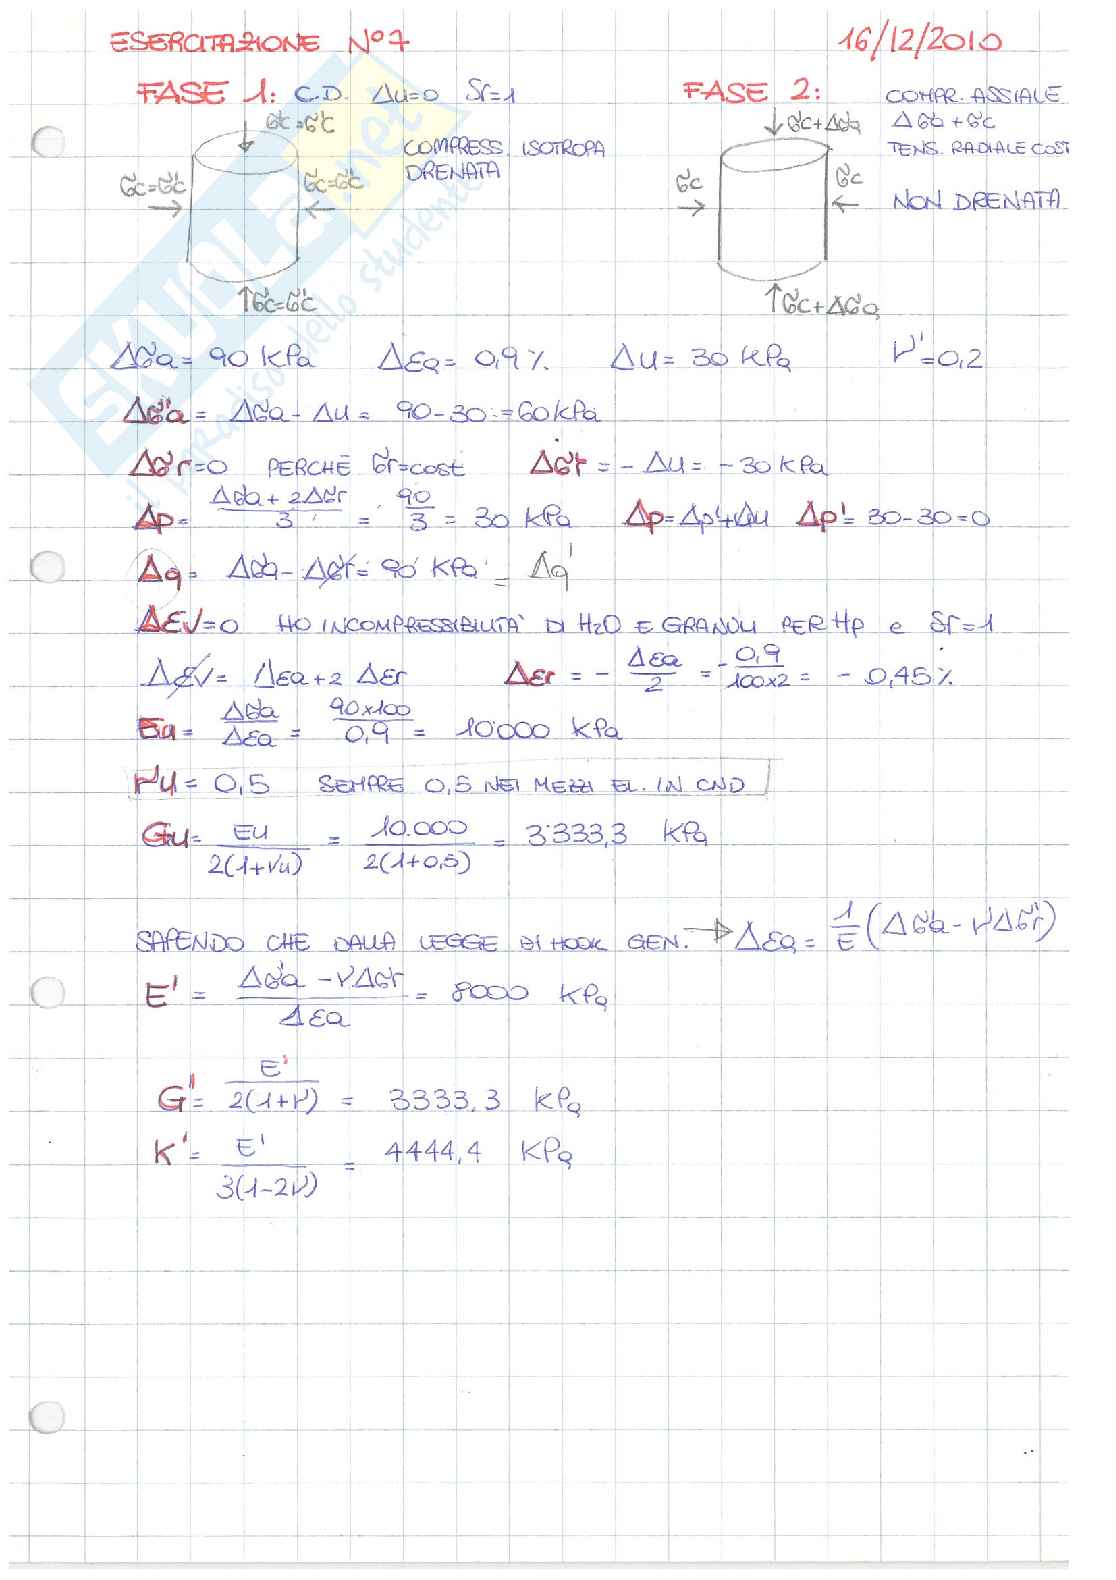 ESERCITAZIONE N°7 16/12/2010
FASE 1: C.D. Δu=0 Sr=1
σc=σ'c
COMPRESS. ISOTROPA
DRENATA
σc=σ'c σc=σ'c
σc=σ'c
FASE 2: COMPR. ASSIALE
σc+Δσa Δσa+σc
TENS. RADIALE COST
σc σc
NON DRENATA
σc+Δσa
SKUOLA.net
il paradiso dello studente
Δσa= 90 KPa Δεa= 0,9% Δu= 30 KPa ν'=0,2
Δσ'a= Δσa-Δu= 90-30=60KPa
Δσr=0 PERCHÈ σr=cost Δσ'r= -Δu= -30 KPa
Δp= (Δσa+2Δσr)/3 = 90/3 = 30 KPa Δp=Δp'+Δu Δp'= 30-30=0
Δq= Δσa-Δσr= 90 KPa = Δq'
Δεv=0 HO INCOMPRESSIBILITA' DI H2O E GRANULI PER Hp e Sr=1
Δεv= Δεa+2 Δεr Δεr = - Δεa/2 = - 0,9/100x2 = - 0,45%
Eu= Δσa/Δεa = 90x100/0,9 = 10'000 KPa
νu= 0,5 SEMPRE 0,5 NEI MEZZI EL. IN CND
Gu= Eu/2(1+νu) = 10.000/2(1+0,5) = 3'333,3 KPa
SAPENDO CHE DALLA LEGGE DI HOOK GEN. → Δεa= 1/E (Δσ'a-ν'Δσ'r)
E' = Δσ'a-νΔσr/Δεa = 8000 KPa
G'= E'/2(1+ν) = 3333,3 KPa
K'= E'/3(1-2ν) = 4444,4 KPa